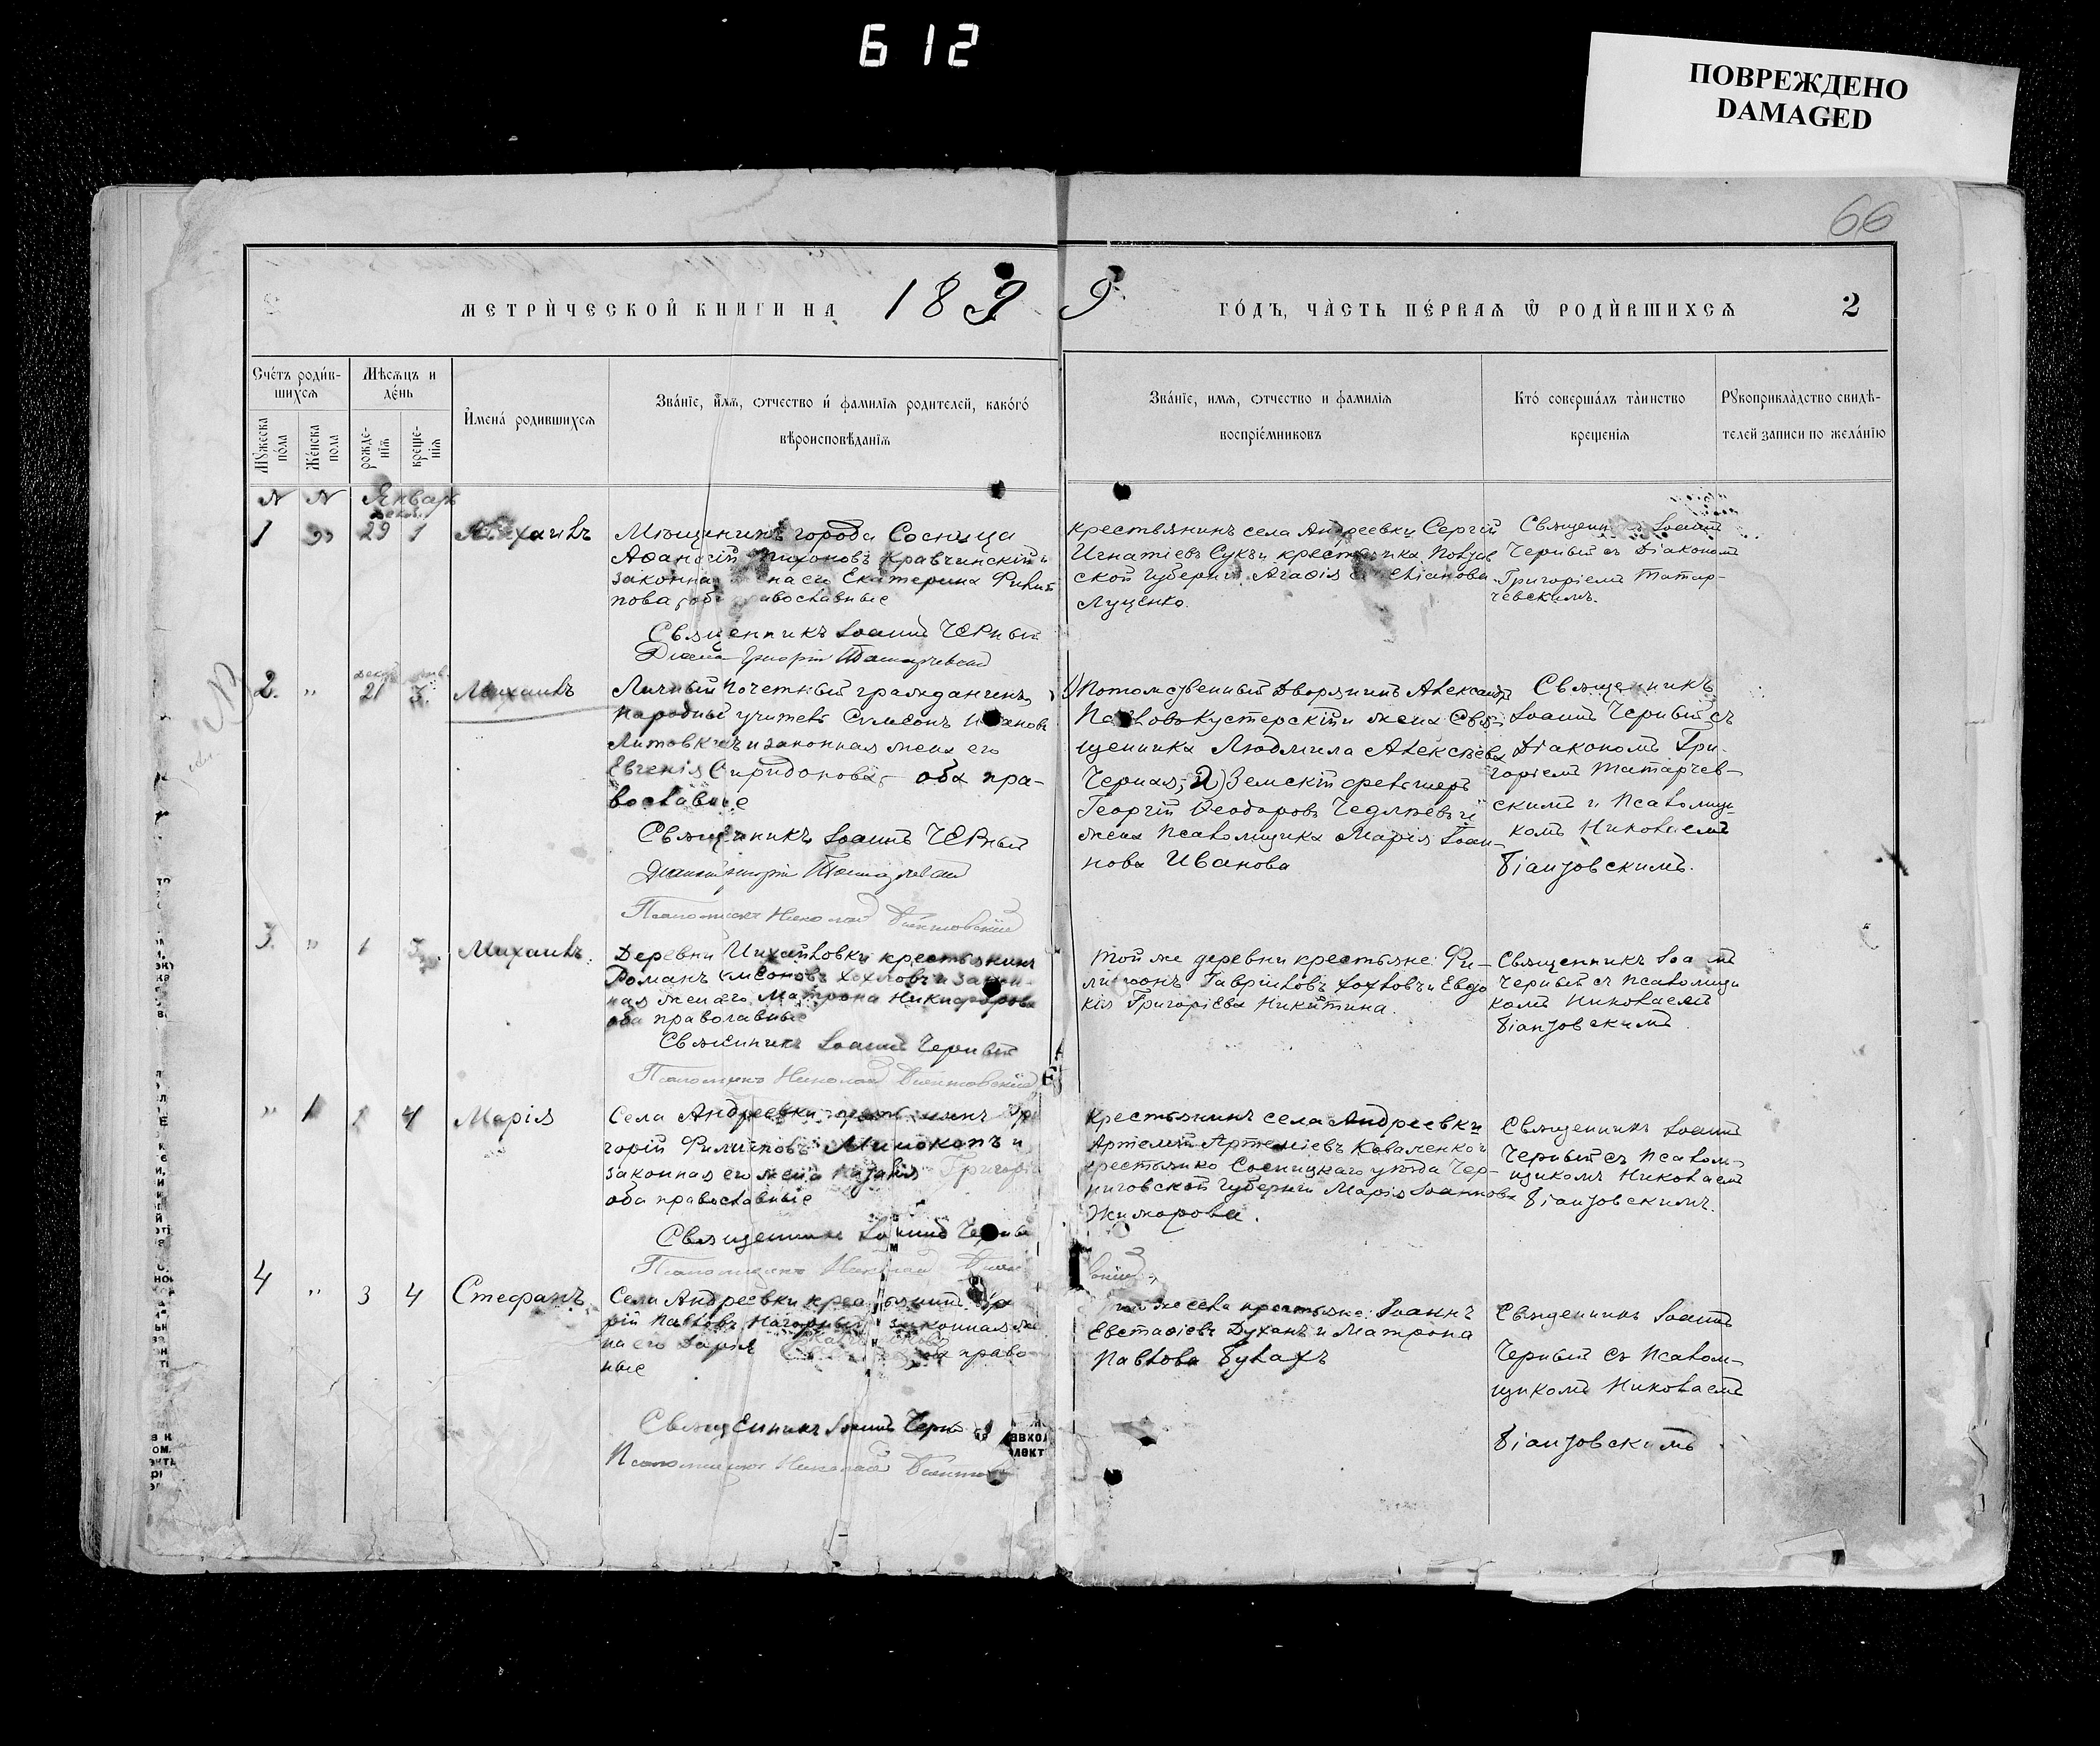 612
ПОВРЕЖДЕНО
DAMAGED
66
МЕТРИ́ЧЕСКОЙ КНИГИ НА 1899 ГО́ДЪ, ЧА́СТЬ ПЕ́РВАѦ Ѿ РОДИ́ВШИХСѦ 2
Сче́тъ роди́в-
шихсѧ
Мѣсѧцъ и
де́нь
Мꙋ́жеска
по́ла
Же́нска
пола
рожде-
нїѧ
креще-
нїѧ
И́мена́ родившихсѧ
Зва́нїе, и҆́мѧ, ѻтчество и҆ фамилїѧ родителей, како́гѡ
вѣроисповѣданїѧ
Зва́нїе, имѧ, ѻтчество и фамилїѧ
воспрїе́мниковъ
Кто́ соверша́лъ та́инство
крещенїѧ
Рꙋкоприкла́дство свидѣ-
телей записи по жела́нїю
N N Январь
1 " 29 1 Михаилъ
Мѣщанинъ города Сосницы
Аѳанасій Кравчинскій и
законная его Екатерина Филип
пова, оба православные
Священникъ Іоаннъ Черный
Григорій Татарчевскій
крестьянинъ села Андреевки Сергій
Игнатіевъ Сукъ и крестьянка Полтав
ской губерніи Агаѳія
Луценко.
Священникъ Іоаннъ
Черный съ Діакономъ
Григоріемъ Татар-
чевскимъ.
2. " 21 3. Михаилъ
Личный почетный гражданинъ,
Народный учитель Симеонъ Иванов
Литовкинъ и законная жена его
Евгенія Спиридонова, оба пра-
вославные
Священникъ Іоаннъ Черный
Діаконъ Григорій Татарчевскій
Псаломщикъ Николай
1) Потомственный Дворянинъ Александръ
Кустерскій и жена Свя-
щенника Людмила Алексѣева
Черная; 2) Земскій фельдшеръ
Георгій Ѳеодоровъ и
жена Псаломщика Марія Іоан-
нова Иванова
Священникъ
Іоаннъ Черный съ
Діакономъ Гри-
горіемъ Татарчев-
скимъ и Псаломщи-
комъ Николаемъ
3. " 1 3 Михаилъ.
Деревни Михайловки крестьянинъ
Романъ Симеоновъ Хохловъ и закон-
ная жена его Матрона Никифорова
оба православные
Священникъ Іоаннъ Черный
Псаломщикъ Николай
Той же деревни крестьяне: Фи-
лимонъ Гавріиловъ Хохловъ и Евдо
кія Григоріева Никитина.
Священникъ Іоаннъ
Черный съ Псаломщи
комъ Николаемъ
" 1 1 4 Марія
Села Андреевки крестьянинъ Гри
горій Филиповъ и
законная его жена
оба православные
Священникъ Іоаннъ Черный
Псаломщикъ Николай
Крестьянинъ села Андреевки
Артемій Артеміевъ Коваленко и
крестьянка Сосницкаго уѣзда Чер-
ниговской губерніи Марія Іоаннова
Жихорова.
Священникъ Іоаннъ
Черный съ Псалом-
щикомъ Николаемъ
4 " 3 4 Стефанъ
Села Андреевки крестьянинъ
Павловъ Нагорный законная же
на его Дарія право
ные
Священникъ Іоаннъ Черный
Псаломщикъ Николай
же села крестьяне: Іоаннъ
Евстаѳіевъ Духанъ и Матрона
Павлова Булахъ
Священникъ Іоаннъ
Черный съ Псалом-
щикомъ Николаемъ